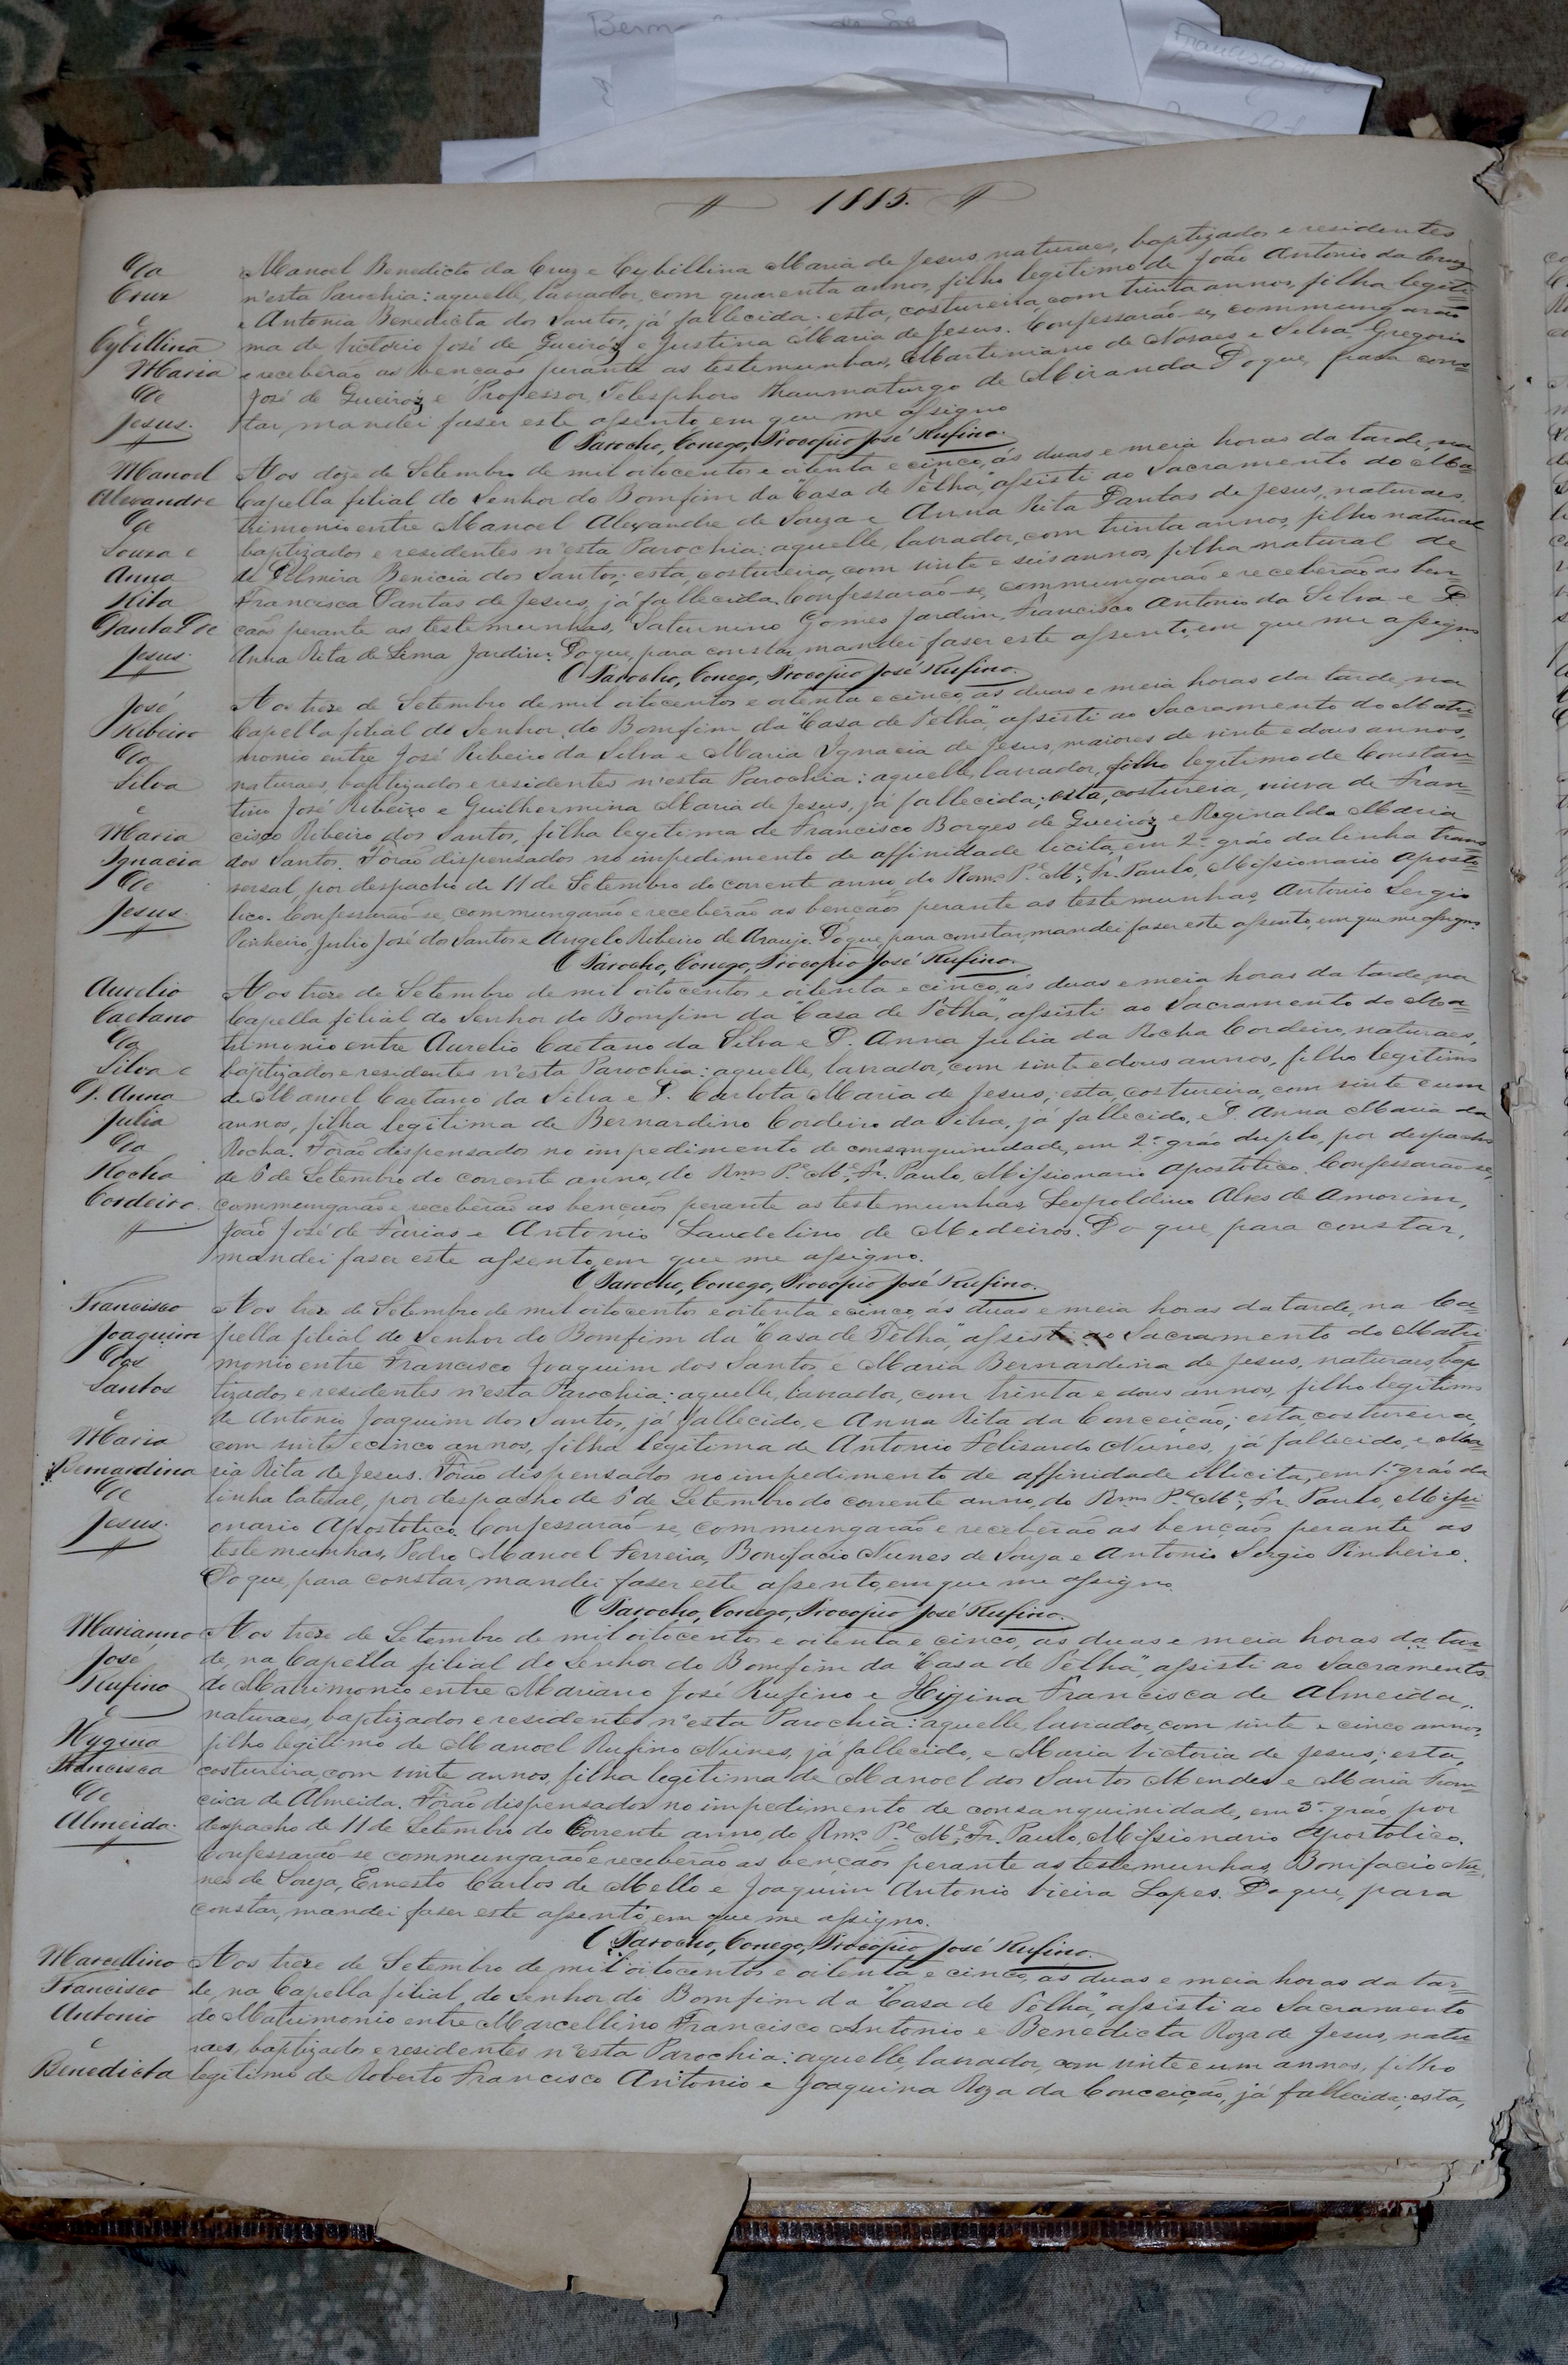 1885.
da
Cruz
e
Cybillina
Maria
de
Jesus.
Manoel Benedicto da Cruz e Cybillina Maria de Jesus, naturaes, baptizados e residentes
n'esta Parochia: aquelle, lavrador, com quarenta annos, filho legitimo de João Antonio da Cruz
e Antonia Benedicta dos Santos, já fallecida: esta, costureira, com trinta annos, filha legiti-
ma de Victorio José de Gueiróz e Justina Maria de Jesus. Confessarão-se, commungarão
e receberão as bençãos perante as testemunhas, Martiniano de Novaes e Silva, Gregorio
José de Gueiroz e Professor, Telesphoro Thaumaturgo de Miranda. Do que, para cons-
tar, mandei faser este assento, em que me assigno.
O Parocho, Conego, Procopio José Rufino.
Manoel
Alexandre
de
Souza e
Anna
Rita
Dantas de
Jesus.
Aos doze de Setembro de mil oitocentos e oitenta e cinco, ás duas e meia horas da tarde, na
Capella filial do Senhor do Bomfim da "Casa de Telha", assisti ao Sacramento do Ma-
trimonio entre Manoel Alexandre de Souza e Anna Rita Dantas de Jesus, naturaes,
baptizados e residentes n'esta Parochia: aquelle, lavrador, com trinta annos, filho natural
de Delmira Benicia dos Santos; esta, costureira, com vinte e seis annos, filha natural de
Francisca Dantas de Jesus, já fallecida. Confessarão-se, commungarão e receberão as ben-
çãos perante as testemunhas, Saturnino Gomes Jardim, Francisco Antonio da Silva e D.
Anna Rita de Lima Jardim. Do que, para constar, mandei faser este assento, em que me assigno.
O Parocho, Conego, Procopio José Rufino.
José
Ribeiro
da
Silva
e
Maria
Ignacia
de
Jesus.
Aos treze de Setembro de mil oitocentos e oitenta e cinco, ás duas e meia horas da tarde, na
Capella filial do Senhor do Bomfim da "Casa de Telha", assisti ao Sacramento do Matri-
monio entre José Ribeiro da Silva e Maria Ignacia de Jesus, maiores de vinte e dous annos,
naturaes, baptizados e residentes n'esta Parochia: aquelle, lavrador, filho legitimo de Constan-
tino José Ribeiro e Guilhermina Maria de Jesus, já fallecida; esta, costureia, viuva de Fran-
cisco Ribeiro dos Santos, filha legitima de Francisco Borges de Gueiróz e Reginalda Maria
dos Santos. Fôrão dispensados no impedimento de affinidade licita, em 2.º gráo da linha trans-
versal, por despacho de 11 de Setembro do corrente anno, do Rm.º P.e M.e, Fr. Paulo, Missionario Aposto-
lico. Confessarão-se, commungarão e receberão as bençãos perante as testemunhas, Antonio Sergio
Pinheiro, Julio José dos Santos e Angelo Ribeiro de Araujo. Do que, para constar, mandei faser este assento, em que me assigno.
O Parocho, Conego, Procopio José Rufino.
Aurelio
Caetano
da
Silva e
D. Anna
Julia
da
Rocha
Cordeiro.
Aos treze de Setembro de mil oitocentos e oitenta e cinco, ás duas e meia horas da tarde, na
Capella filial do Senhor do Bomfim da "Casa de Telha", assisti ao Sacramento do Ma-
trimonio entre Aurelio Caetano da Silva e D. Anna Julia da Rocha Cordeiro, naturaes,
baptizados e residentes n'esta Parochia: aquelle, lavrador, com vinte e dous annos, filho legitimo
de Manoel Caetano da Silva e D. Carlota Maria de Jesus; esta, costureira, com vinte e um
annos, filha legitima de Bernardino Cordeiro da Silva, já fallecido, e D. Anna Maria da
Rocha. Fôrão dispensados no impedimento de consanguinidade, em 2.º gráo duplo, por despacho
de 6 de Setembro do corrente anno, do Rm.º P.e M.e, Fr. Paulo, Missionario Apostolico. Confessarão-se,
commungarão e receberão as bençãos perante as testemunhas, Leopoldino Alves de Amorim,
João José de Farias e Antonio Laudelino de Medeiros. Do que, para constar,
mandei faser este assento, em que me assigno.
O Parocho, Conego, Procopio José Rufino.
Francisco
Joaquim
dos
Santos
e
Maria
Bernardina
de
Jesus.
Aos treze de Setembro de mil oitocentos e oitenta e cinco, ás duas e meia horas da tarde, na Ca-
pella filial do Senhor do Bomfim da "Casa de Telha", assisti ao Sacramento do Matri-
monio entre Francisco Joaquim dos Santos e Maria Bernardina de Jesus, naturaes, bap-
tizados e residentes n'esta Parochia: aquelle, lavrador, com trinta e dous annos, filho legitimo
de Antonio Joaquim dos Santos, já fallecido, e Anna Rita da Conceição; esta, costureira,
com vinte e cinco annos, filha legitima de Antonio Felisardo Nunes, já fallecido, e Ma-
ria Rita de Jesus. Fôrão dispensados no impedimento de affinidade illicita, em 1.º gráo da
linha lateral, por despacho de 6 de Setembro do corrente anno, do Rm.º P.e M.e, Fr. Paulo, Missi-
onario Apostolico. Confessarão-se, commungarão e receberão as bençãos perante as
testemunhas, Pedro Manoel Ferreira, Bonifacio Nunes de Souza e Antonio Sergio Pinheiro.
Do que, para constar, mandei faser este assento, em que me assigno.
O Parocho, Conego, Procopio José Rufino.
Marianno
José
Rufino
e
Hygina
Francisca
de
Almeida.
Aos treze de Setembro de mil oitocentos e oitenta e cinco, ás duas e meia horas da tar-
de, na Capella filial do Senhor do Bomfim da "Casa de Telha", assisti ao Sacramento
do Matrimonio entre Mariano José Rufino e Higina Francisca de Almeida,
naturaes, baptizados e residentes n'esta Parochia: aquelle, lavrador, com vinte e cinco annos,
filho legitimo de Manoel Rufino Nunes, já fallecido, e Maria Victoria de Jesus; esta,
costureira, com vinte annos, filha legitima de Manoel dos Santos Mendes e Maria Fran-
cisca de Almeida. Fôrão dispensados no impedimento de consanguinidade, em 3.º gráo, por
despacho de 11 de Setembro do Corrente anno, do Rm.º P.e M.e, Fr. Paulo, Missionario Apostolico.
Confessarão-se commungarão e receberão as bençãos perante as testemunhas, Bonifacio Nu-
nes de Souza, Ernesto Carlos de Mello e Joaquim Antonio Vieira Lopes. Do que, para
constar, mandei faser este assento, em que me assigno.
O Parocho, Conego, Procopio José Rufino.
Marcellino
Francisco
Antonio
e
Benedicta
Aos treze de Setembro de mil oitocentos e oitenta e cinco, ás duas e meia horas da tar-
de, na Capella filial do Senhor do Bomfim da "Casa de Telha", assisti ao Sacramento
do Matrimonio entre Marcellino Francisco Antonio e Benedicta Roza de Jesus, natu-
raes, baptizados e residentes n'esta Parochia: aquelle, lavrador, com vinte e um annos, filho
legitimo de Roberto Francisco Antonio e Joaquina Roza da Conceição, já fallecida; esta,